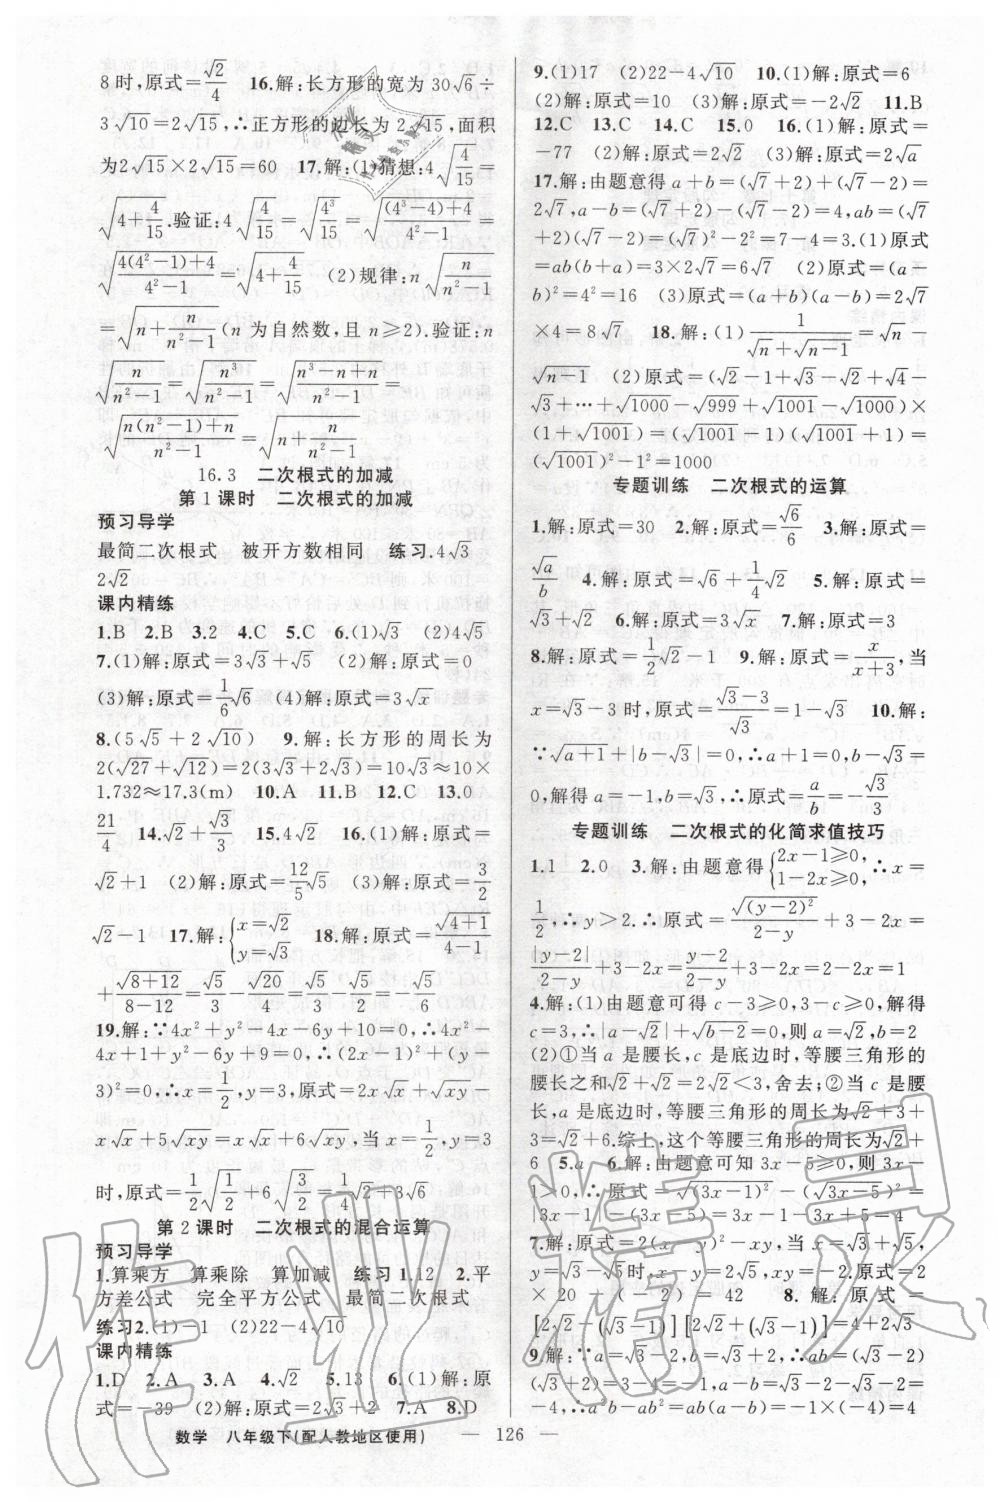 8时,原式=√2/4　16.解:长方形的宽为30√6÷
3√10=2√15,∴正方形的边长为2√15,面积
为2√15×2√15=60　17.解:(1)猜想:4√(4/15)=
√(4+4/15).验证:4√(4/15)=√(4³/15)=√((4³-4)+4)/(4²-1))=
√((4(4²-1)+4)/(4²-1))=√(4+4/15)　(2)规律:n√(n/(n²-1))
=√(n+n/(n²-1))(n为自然数,且n≥2).验证:n
√(n/(n²-1))=√(n³/(n²-1))=√((n³-n+n)/(n²-1))=
√((n(n²-1)+n)/(n²-1))=√(n+n/(n²-1))
16.3　二次根式的加减
第1课时　二次根式的加减
预习导学
最简二次根式　被开方数相同　练习.4√3
2√2
课内精练
1.B　2.B　3.2　4.C　5.C　6.(1)√3　(2)4√5
7.(1)解:原式=3√3+√5　(2)解:原式=0
(3)解:原式=(1/6)√6　(4)解:原式=3√x
8.(5√5+2√10)　9.解:长方形的周长为
2(√27+√12)=2(3√3+2√3)=10√3≈10×
1.732≈17.3(m)　10.A　11.B　12.C　13.0
21/4　14.√2+√3/3　15.4√2　16.(1)解:原式=
√2+1　(2)解:原式=(12/5)√5　(3)解:原式=
√2-1　17.解:{x=√2 y=√3　18.解:原式=√(4+1)/(4-1)
+√(8+12)/(8-12)=√5/3-√20/4=√5/3-√5/2=-√5/6
19.解:∵4x²+y²-4x-6y+10=0,∴4x²-
4x+1+y²-6y+9=0,∴(2x-1)²+(y-
3)²=0,∴x=1/2,y=3,原式=2x√x+√xy-
x√x+5√xy=x√x+6√xy,当x=1/2,y=3
时,原式=(1/2)√(1/2)+6√(3/2)=(1/4)√2+3√6
第2课时　二次根式的混合运算
预习导学
1.算乘方　算乘除　算加减　练习1.12　2.平
方差公式　完全平方公式　最简二次根式
练习2.(1)-1　(2)22-4√10
课内精练
1.D　2.A　3.A　4.√2　5.13　6.(1)解:原
式=-39　(2)解:原式=2√3+2　7.A　8.D
9.(1)17　(2)22-4√10　10.(1)解:原式=6
(2)解:原式=10　(3)解:原式=-2√2　11.B
12.C　13.C　14.C　15.0　16.(1)解:原式=
-77　(2)解:原式=2√2　(3)解:原式=2√a
17.解:由题意得a+b=(√7+2)+(√7-2)=
2√7,a-b=(√7+2)-(√7-2)=4,ab=(√7
+2)(√7-2)=(√7)²-2²=7-4=3.(1)原式
=ab(a+b)=3×2√7=6√7　(2)原式=(a-
b)²=4²=16　(3)原式=(a+b)(a-b)=2√7
×4=8√7　18.解:(1)1/(√n+√(n-1))=√n-
√(n-1)　(2)原式=(√2-1+√3-√2+√4-
√3+…+√1000-√999+√1001-√1000)×
(1+√1001)=(√1001-1)(√1001+1)=
(√1001)²-1²=1000
专题训练　二次根式的运算
1.解:原式=30　2.解:原式=√6/6　3.解:原式=
√a/b　4.解:原式=√6+(1/4)√2　5.解:原式=
√3+√2　6.解:原式=2√3　7.解:原式=3
8.解:原式=(1/2)√2-1　9.解:原式=x/(x+3),当
x=√3-3时,原式=(√3-3)/√3=1-√3　10.解:
∵√(a+1)+|b-√3|=0,∴a+1=0,b-√3=
0,解得a=-1,b=√3,∴原式=a/b=-√3/3
专题训练　二次根式的化简求值技巧
1.1　2.0　3.解:由题意得{2x-1≥0, 1-2x≥0,∴x=
1/2,∴y>2.∴原式=√((y-2)²)/(2-y)+3-2x=
|y-2|/(2-y)+3-2x=(y-2)/(2-y)+3-2x=2-2x=1
4.解:(1)由题意可得c-3≥0,3-c≥0,解得
c=3,∴|a-√2|+√(b-2)=0,则a=√2,b=2
(2)①当a是腰长,c是底边时,等腰三角形的
腰长之和√2+√2=2√2<3,舍去;②当c是腰
长,a是底边时,等腰三角形的周长为√2+3+
3=√2+6.综上,这个等腰三角形的周长为√2+
6　5.a　6.解:由题意可知3x-5≥0,原3x-
1>0,∴原式=√((3x-1)²)-√((3x-5)²)=
|3x-1|-|3x-5|=3x-1-3x+5=4
7.解:原式=2(x-y)²-xy,当x=√3+√5,
y=√3-√5时,x-y=2√5,xy=-2.原式=2
×20-(-2)=42　8.解:原式=
[2√2-(√3-1)][2√2+(√3-1)]=4+2√3
9.解:∵a=√3-2,b=√3+2,∴ab=(√3-2)
(√3+2)=3-4=-1,a-b=√3-2-√3-2=
-4,∴a²b-ab²=ab(a-b)=(-1)×(-4)=4
数学　八年级下(配人教地区使用)　— 126 —
作业精灵